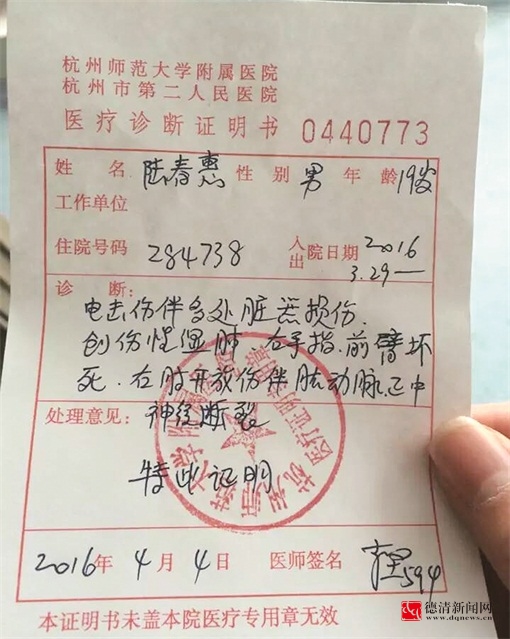 杭州师范大学附属医院
杭州市第二人民医院
医疗诊断证明书 0440773
姓名 陆春惠 性别 男 年龄 19岁
工作单位
住院号码 284738 入出院日期 2016
3.29—
诊断:
电击伤伴多处脏器损伤.
创伤性湿肺 右手指.前臂坏
死.右肘开放伤伴肱动脉.正中
处理意见: 神经断裂
特此证明
2016年4月4日 医师签名 594
本证明书未盖本院医疗专用章无效
德清新闻网
www.dqnews.com.cn